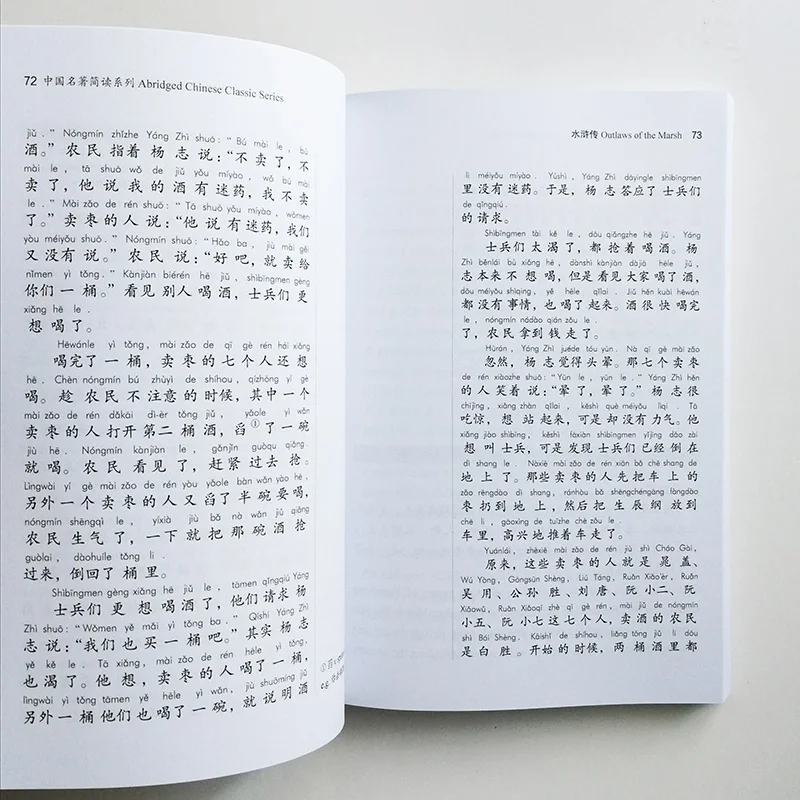 72 中国名著简读系列 Abridged Chinese Classic Series
jiǔ.” Nóngmín zhǐzhe Yáng Zhì shuō: “Bú mài le, bú
酒。” 农民指着杨志说：“不卖了，不
mài le, tā shuō wǒ de jiǔ yǒu míyào, wǒ bú mài
卖了，他说我的酒有迷药，我不卖
le.” Mài zǎo de rén shuō: “Tā shuō yǒu míyào, wǒmen
了。” 卖枣的人说：“他说有迷药，我们
yòu méiyǒu shuō.” Nóngmín shuō: “Hǎo ba, jiù mài gěi
又没有说。” 农民说：“好吧，就卖给
nǐmen yì tǒng.” Kànjiàn biérén hē jiǔ, shìbīngmen gèng
你们一桶。” 看见别人喝酒，士兵们更
xiǎng hē le.
想喝了。
Hēwánle yì tǒng, mài zǎo de qī gè rén hái xiǎng
喝完了一桶，卖枣的七个人还想
hē. Chèn nóngmín bú zhùyì de shíhou, qízhōng yí gè
喝。趁农民不注意的时候，其中一个
mài zǎo de rén dǎkāi dì-èr tǒng jiǔ, yǎole yì wǎn
卖枣的人打开第二桶酒，舀①了一碗
jiù hē. Nóngmín kànjiàn le, gǎnjǐn guòqu qiǎng.
就喝。农民看见了，赶紧过去抢。
Lìngwài yí gè mài zǎo de rén yòu yǎole bàn wǎn yào hē,
另外一个卖枣的人又舀了半碗要喝，
nóngmín shēngqì le, yíxià jiù bǎ nà wǎn jiǔ qiǎng
农民生气了，一下就把那碗酒抢
guòlai, dàohuíle tǒng li.
过来，倒回了桶里。
Shìbīngmen gèng xiǎng hē jiǔ le, tāmen qǐngqiú Yáng
士兵们更想喝酒了，他们请求杨
Zhì shuō: “Wǒmen yě mǎi yì tǒng ba.” Qíshí Yáng Zhì
志说：“我们也买一桶吧。” 其实杨志
yě kě le. Tā xiǎng, mài zǎo de rén hēle yì tǒng,
也渴了。他想，卖枣的人喝了一桶，
lìngwài yì tǒng tāmen yě hēle yì wǎn, jiù shuōmíng jiǔ
另外一桶他们也喝了一碗，就说明酒
水浒传 Outlaws of the Marsh 73
li méiyǒu míyào. Yúshì, Yáng Zhì dāyìngle shìbīngmen
里没有迷药。于是，杨志答应了士兵们
de qǐngqiú.
的请求。
Shìbīngmen tài kě le, dōu qiǎngzhe hē jiǔ. Yáng
士兵们太渴了，都抢着喝酒。杨
Zhì běnlái bù xiǎng hē, dànshì kànjiàn dàjiā hēle jiǔ,
志本来不想喝，但是看见大家喝了酒，
dōu méiyǒu shìqing, yě hēle qǐlai. Jiǔ hěn kuài hēwán
都没有事情，也喝了起来。酒很快喝完
le, nóngmín nádào qián zǒu le.
了，农民拿到钱走了。
Hūrán, Yáng Zhì juéde tóu yūn. Nà qī gè mài zǎo
忽然，杨志觉得头晕。那七个卖枣
de rén xiàozhe shuō: “Yūn le, yūn le.” Yáng Zhì hěn
的人笑着说：“晕了，晕了。” 杨志很
chījīng, xiǎng zhàn qǐlai, kěshì què méiyǒu lìqi. Tā
吃惊，想站起来，可是却没有力气。他
xiǎng jiào shìbīng, kěshì fāxiàn shìbīngmen yǐjīng dǎo zài
想叫士兵，可是发现士兵们已经倒在
dì shang le. Nàxiē mài zǎo de rén xiān bǎ chē shang de
地上了。那些卖枣的人先把车上的
zǎo rēngdào dì shang, ránhòu bǎ shēngchéngāng fàngdào
枣扔到地上，然后把生辰纲放到
chē li, gāoxìng de tuīzhe chē zǒu le.
车里，高兴地推着车走了。
Yuánlái, zhèxiē mài zǎo de rén jiù shì Cháo Gài,
原来，这些卖枣的人就是晁盖、
Wú Yòng, Gōngsūn Shèng, Liú Táng, Ruǎn Xiǎo'èr, Ruǎn
吴用、公孙胜、刘唐、阮小二、阮
Xiǎowǔ, Ruǎn Xiǎoqī zhè qī gè rén, mài jiǔ de nóngmín
小五、阮小七这七个人，卖酒的农民
shì Bái Shèng. Kāishǐ de shíhou, liǎng tǒng jiǔ li dōu
是白胜。开始的时候，两桶酒里都